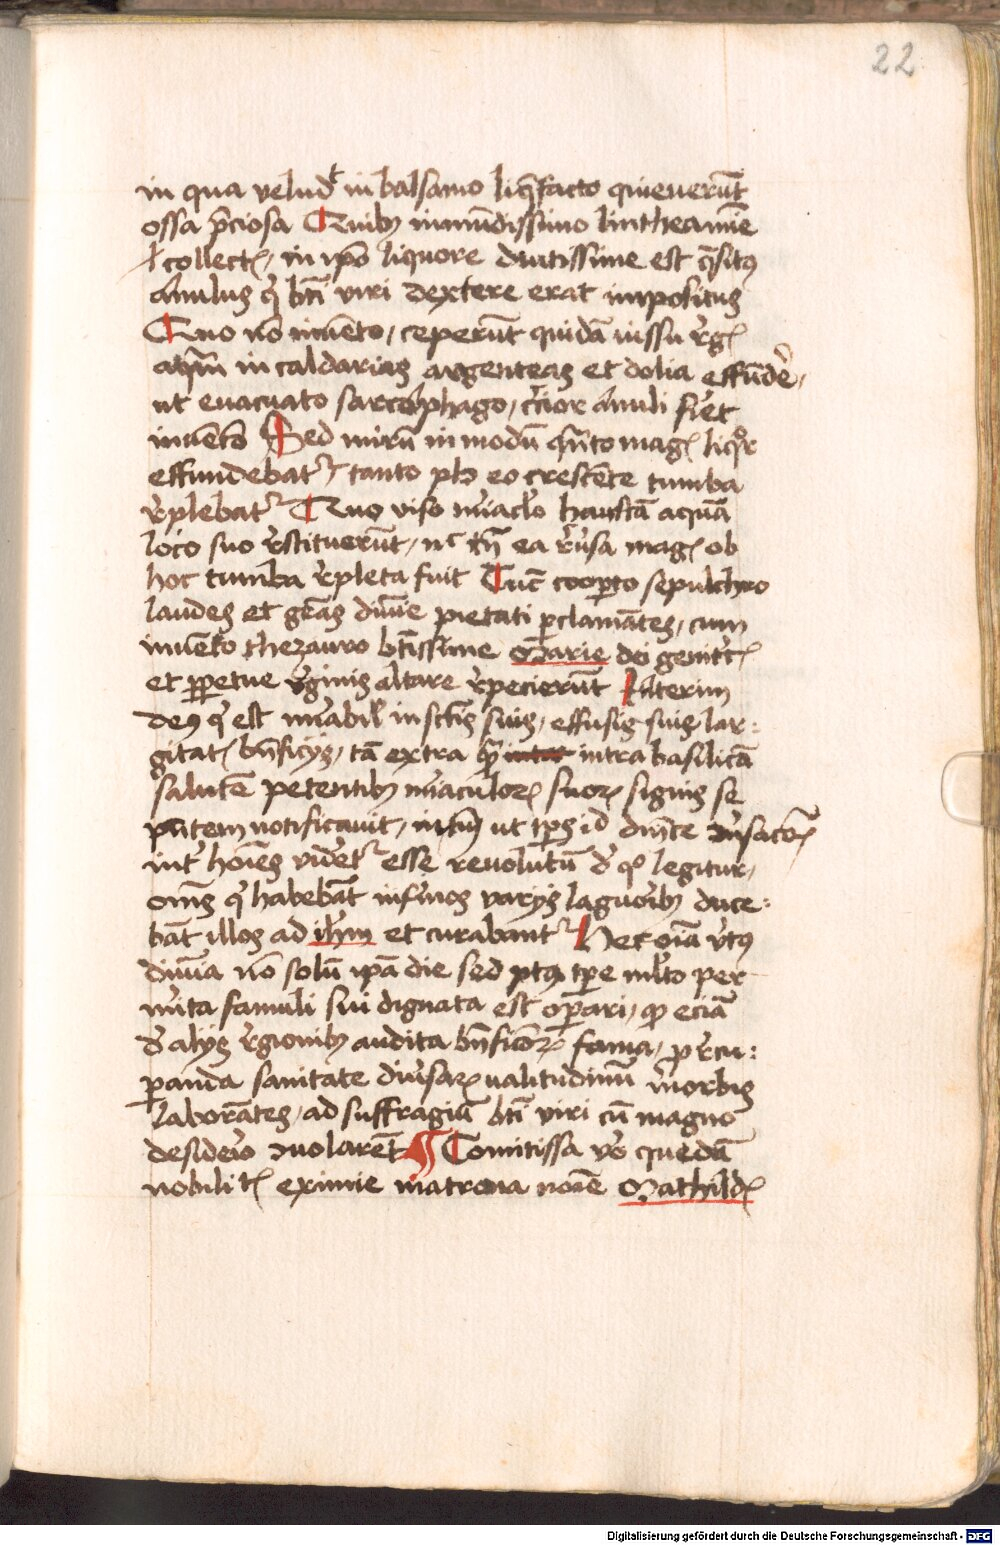 22
in qua velud in balsamo liq̄facto q̄uenerūt
ossa p̄ciosa Quibꝫ inmūdissimo lintheamīe
collectꝭ, in ip̄o liquore diutissime est q̄situs
Anulus q̄ bti viri dextere erat impositus
Quo nō inuēto, ceperūt quidā iussu rͤgꝭ
aquā in caldarias argenteas et dolia effūdē,
ut euacuato sarcophago, cͥcior Anuli fiet
inuēto Sed mirū in modū q̄nto magꝭ liqͦr
effundebatͬ, tanto pl eo crescēte tumba
rͤplebatͬ Quo viso mͥaclo haustā aquā
loco suo rͤstituerūt, nͨ tn̄ ea rͬusa magꝭ ob
hoc tumba rͤpleta fuit Tūc coopto sepulchro
laudes et grās diuīe pietati p̱clamātes, cum
inuēto thezauro btissime Marie dei genitͥcꝭ
et ppetue vͥginis altare rͤpecierūt Interim
deꝰ q̄ est mͥabilꝭ in sctis suis, effusis suis lar:
gitatꝭ bn̄ficijs, tā extra q̄ intra basilicā
salutē petentibꝫ mͥaculorꝝ suorꝝ signis se
pn̄tem notificauit, ut tp̄s id
intͬ hoīes videtͬ esse reuolutū dͤ qͦ legitur,
oms q̄ habebāt infͥmos varijs laguoribꝫ duce:
bāt illos ad ihm et curabantͬ Hec oīa vͥtꝰ
diuīa nō solū ipā die sed ptꝰ tpe mlto per
mͥita famuli sui dignata est opari, qͦ eciā
dͤ alijs rͤgionibꝫ audita bn̄ficiorꝝ fama, p rͤcu:
panda sanitate diuͥsarꝝ ualitudinū morbis
laborātes, ad suffragiū bti viri cū magno
desidͤio Comitissa vͦ quedā
nobilitꝭ eximie matrona noīe Mathildꝭ
Digitalisierung gefördert durch die Deutsche Forschungsgemeinschaft - DFG